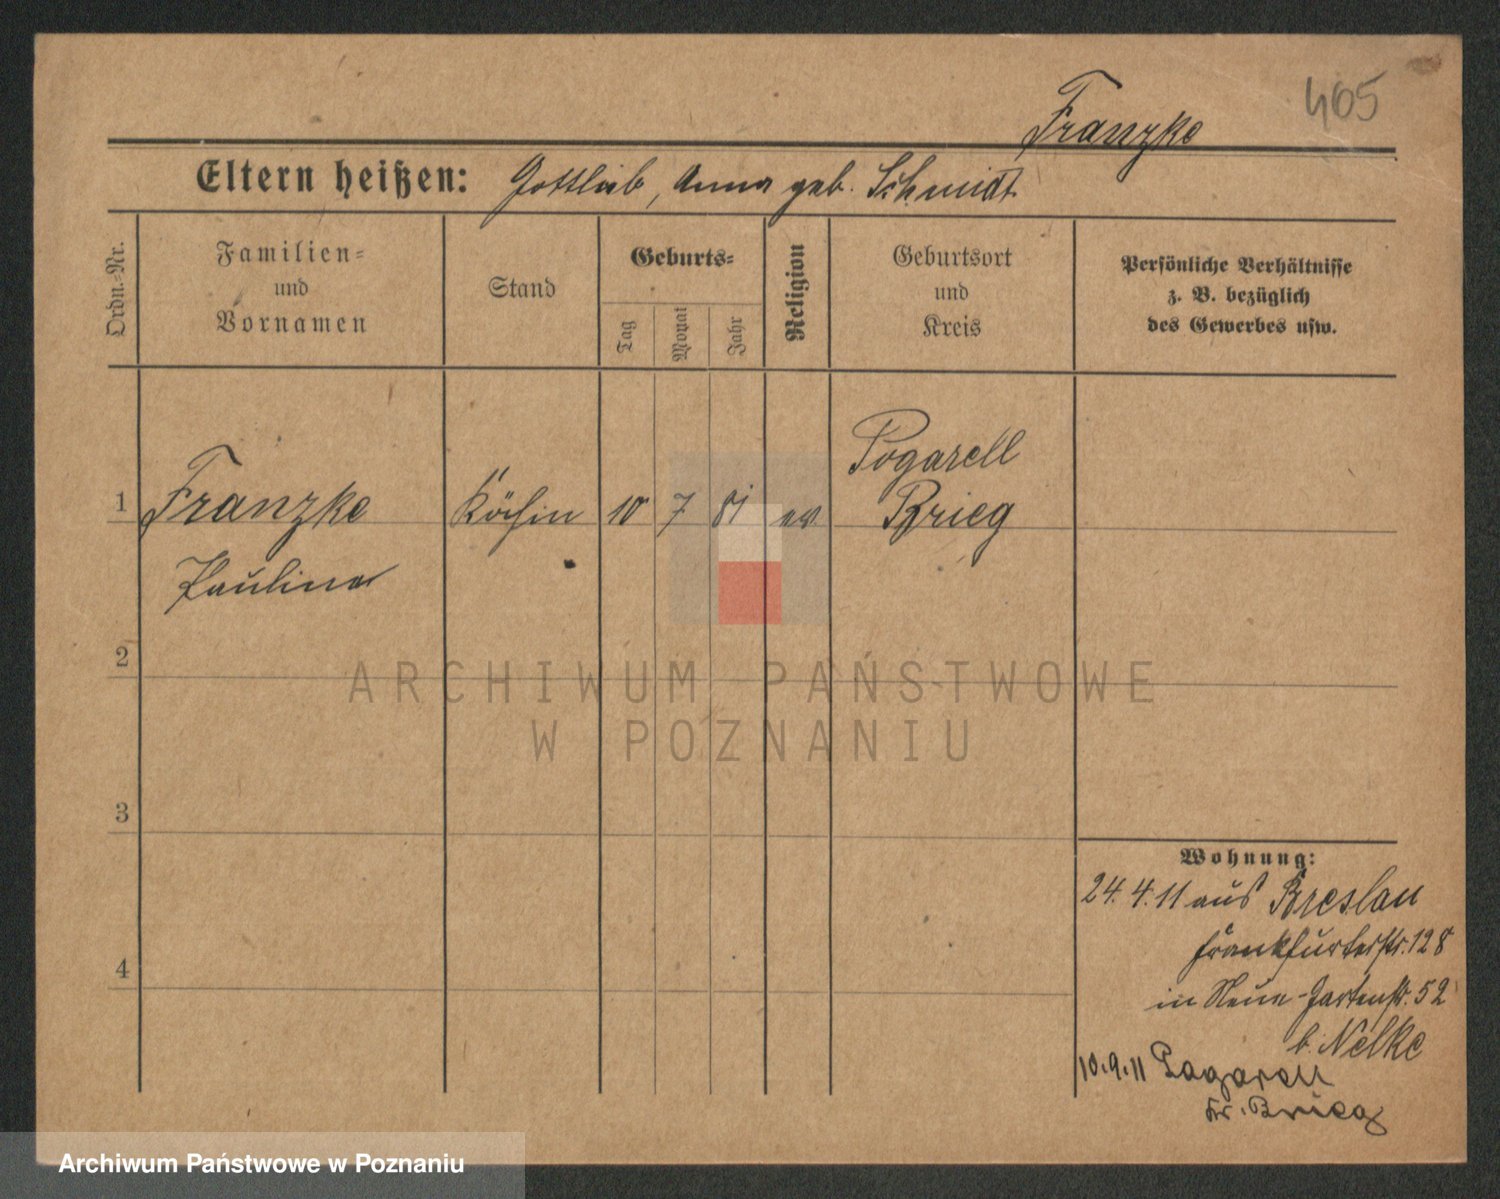 465
Franzke
Eltern heißen: Gottlieb, Anna geb. Schmidt
Ordn.-Nr.
Familien-
und
Vornamen
Stand
Geburts-
Tag
Monat
Jahr
Religion
Geburtsort
und
Kreis
Persönliche Verhältnisse
z. B. bezüglich
des Gewerbes usw.
Pogarell
1 Franzke Köchin 10 7 81 ev Brieg
Paulina
2
3
4
ARCHIWUM PAŃSTWOWE
W POZNANIU
Wohnung:
24.4.11 aus Breslau
Frankfurterstr. 128
in Neue-Gartenstr. 52
b. Nelke
10.9.11 Pogarell
Kr. Brieg
Archiwum Państwowe w Poznaniu